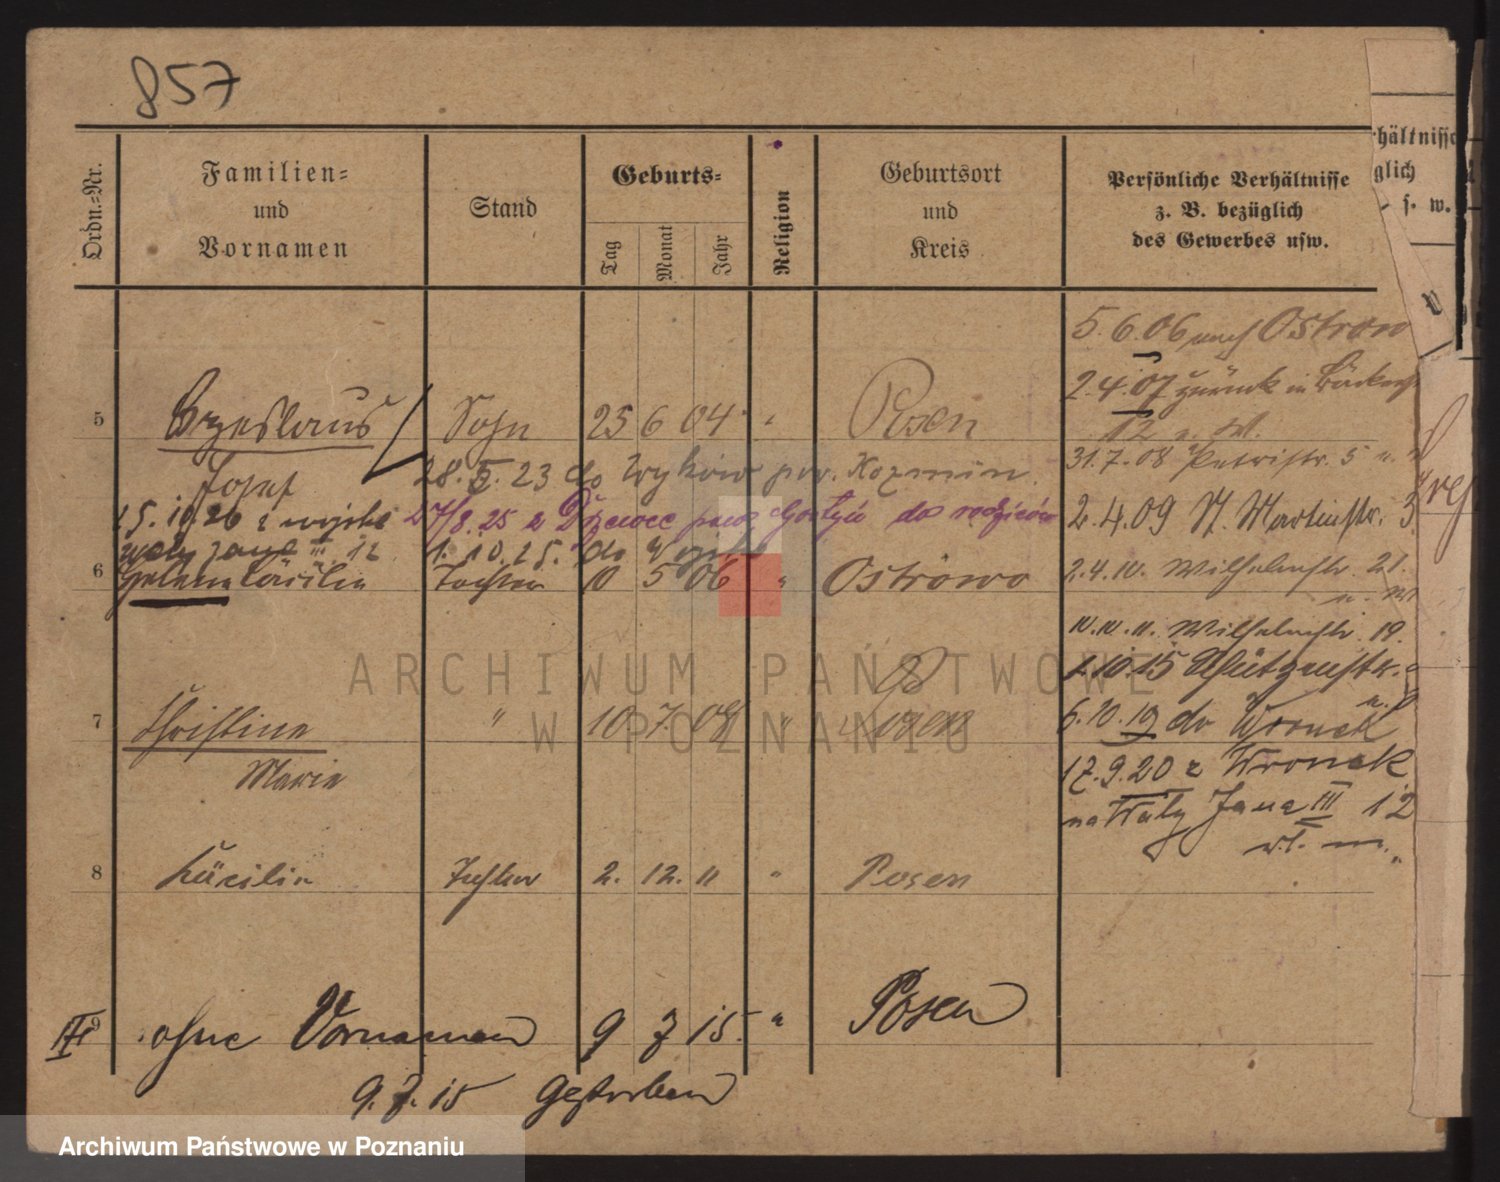 857
Ordn.-Nr.
Familien-
und
Vornamen
Stand
Geburts-
Tag
Monat
Jahr
Religion
Geburtsort
und
Kreis
Persönliche Verhältnisse
z. B. bezüglich
des Gewerbes usw.
5.6.06 nach Ostrowo
2.4.07 zurück in
5 Sohn 25 6 04 Posen
12 u. W.
Josef
28.5.23 do pow. Kozmin
31.7.08 Petristr. 5
15.10.26 z wojska
27/8.25 z pow Gostyń do rodziców
2.4.09 St. Martinstr. 3
Wały Jana III 12
1.10.25. do Wojska
6 Helena Cäcilia Tochter 10 5 06 " Ostrowo
2.4.10. Wilhelmstr. 21.
10.10.11. Wilhelmstr. 19.
1.10.15 Schützenstr.
7 Christine " 10 7. 08 " Posen
6.10.19 do Wronek
Maria
17.9.20 z Wronek
na Wały Jana III 12
8 Cäcilia Tochter 2. 12. 11 " Posen
9 ohne Vornamen 9 7 15. " Posen
9.7.15 Gestorben
hältnisse
glich
s. w.
ARCHIWUM PAŃSTWOWE
W POZNANIU
Archiwum Państwowe w Poznaniu